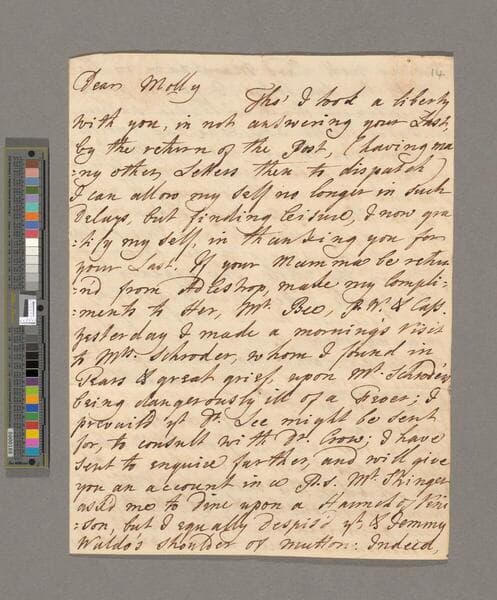 14
Dear Molly Tho' I took a liberty
with you, in not answering your Last,
by the return of the Post, (having ma
:ny other Letters then to dispatch)
I can allow my self no longer in such
Delays, but finding leisure, I now gra
:tify my self, in thanking you for
your Last. If your Mamma be retur
:n'd from Adlestrop, make my compli=
:ments to Her, Mr. Beo, & Cass.
Yesterday I made a morning's visit
to Mrs. Schroder, whom I found in
Tears & great grief, upon Mr. Schroder's
being dangerously ill of a Fever; I
prevail'd yt. Dr. Lee might be sent
for, to consult with Dr. Crow; I have
sent to enquire farther, and will give
you an account in a P.s. Mr.
ask'd me to Dine upon a Haunch of Veni
:son, but I equally despis'd yt. & Jemmy
Waldo's shoulder of mutton: Indeed,